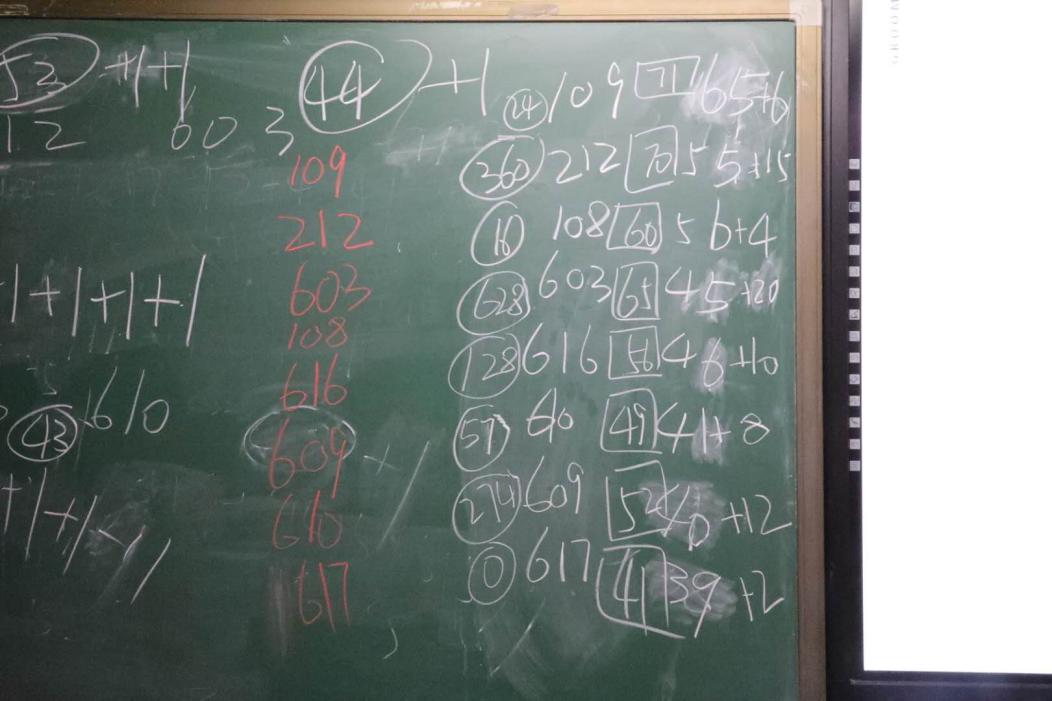 53 +1+1
12 603
1+1+1+1
43 610
+1+1-1
44 +1
109
212
603
108
616
609 +1
610
617
24 109 71 65+6
360 212 70 55+15
16 108 60 56+4
628 603 65 45+20
128 616 56 46+10
57 610 49 41+8
274 609 52 40+12
0 617 41 39+2